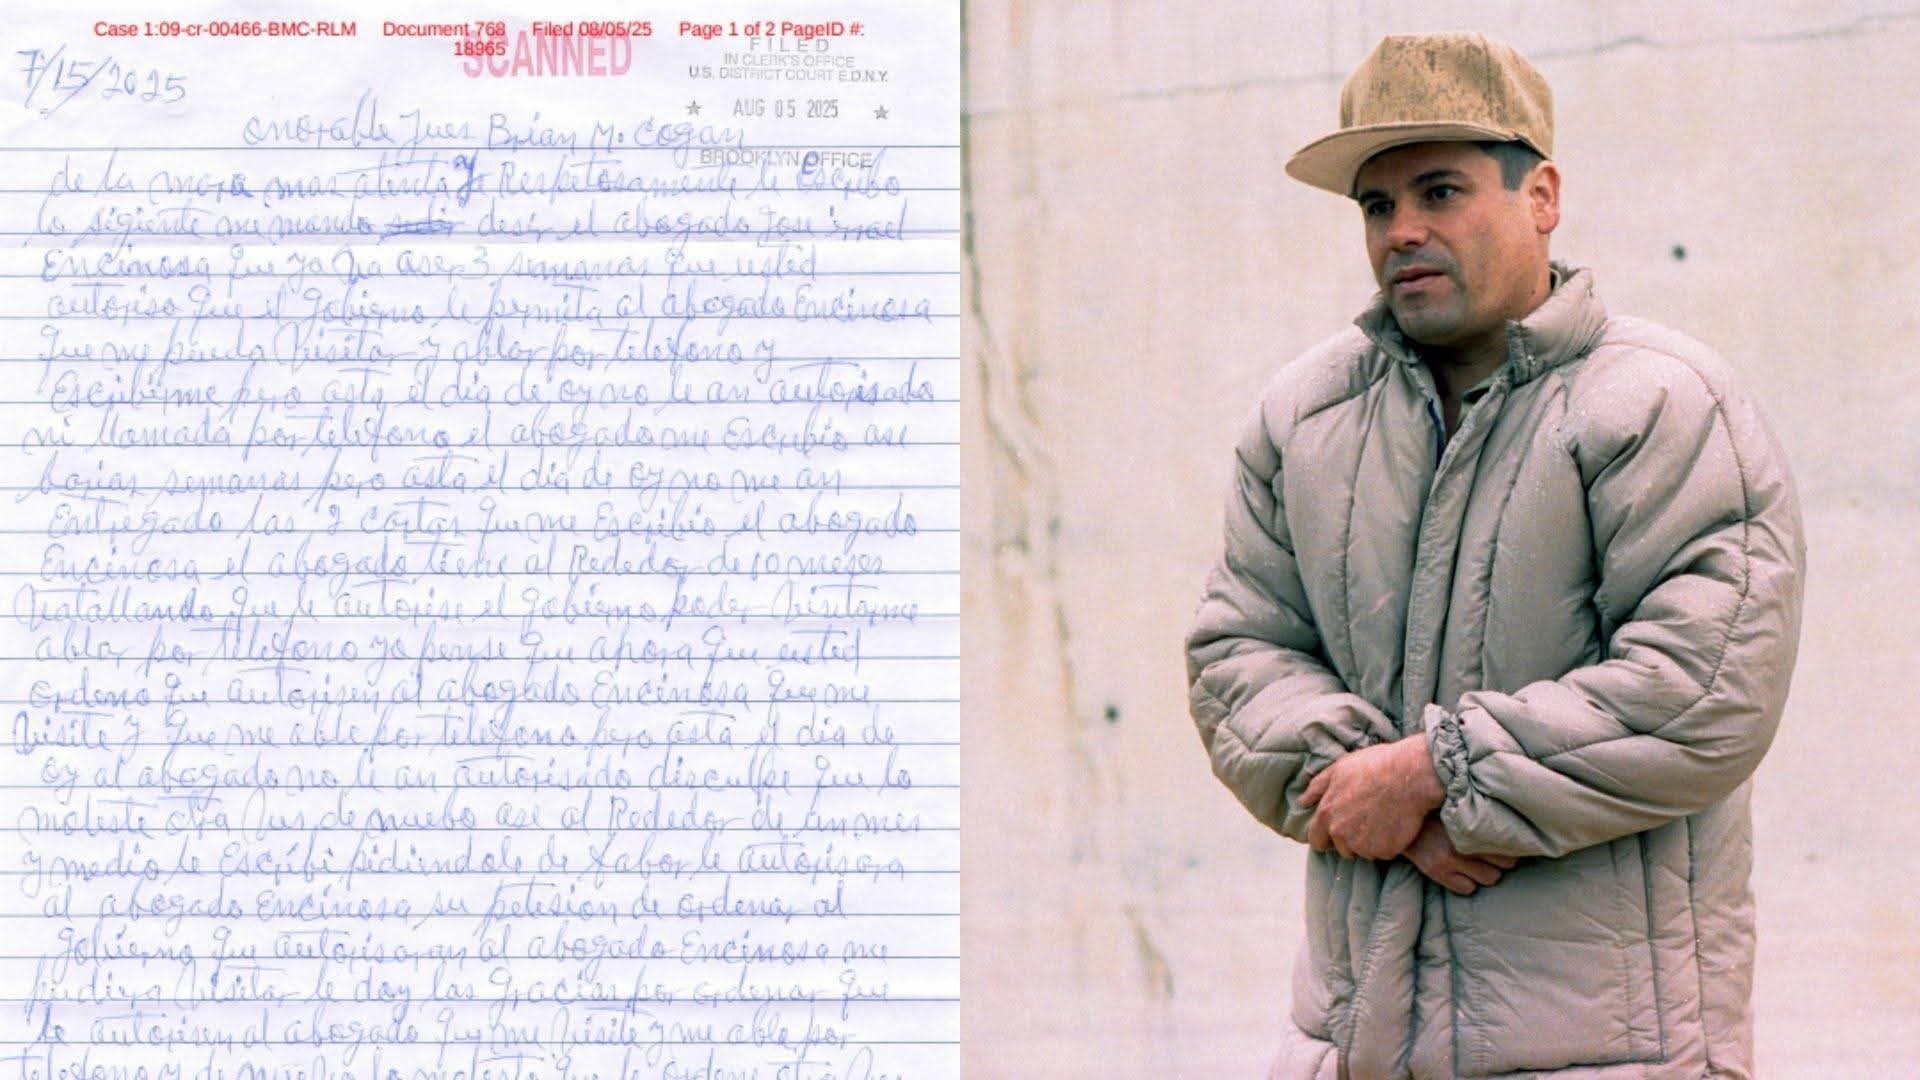 Case 1:09-cr-00466-BMC-RLM Document 768 Filed 08/05/25 Page 1 of 2 PageID #:
18965
SCANNED
FILED
IN CLERK'S OFFICE
U.S. DISTRICT COURT E.D.N.Y.
★ AUG 05 2025 ★
BROOKLYN OFFICE
7/15/2025
onorable Jues Brian M. Cogan
de la mara mas atenta y Respetosamente le Escribo
lo sigiente me mando desir el abogado Jose
Encinosa que ya ba aser 3 semanas que usted
autoriso que el gobierno le permita al abogado Encinosa
que me pueda Visitar y ablar por telefono y
Escribirme pero asta el dia de oy no le an autorisado
ni llamada por telefono el abogado me Escribio ase
barias semanas pero asta el dia de oy no me an
Entregado las 2 cartas que me Escribio el abogado
Encinosa el abogado tiene al Rededor de 10 meses
Vatallando que le autorise el gobierno poder Visitarme
ablar por telefono yo pense que ahora que usted
ordeno que autorisen al abogado Encinosa que me
Visite y que me able por telefono pero asta el dia de
oy al abogado no le an autorisado disculpe que lo
moleste otra Vus de nuebo ase al Rededor de un mes
y medio le Escribi pidiendole de fabor le autorisara
al abogado Encinosa su petision de ordenar al
gobierno que autorisaran al abogado Encinosa me
pudiera Visitar le doy las gracias por ordenar que
le autorisen al abogado que me Visite y me able por
telefono y de nuebo lo molesto que le ordene otra